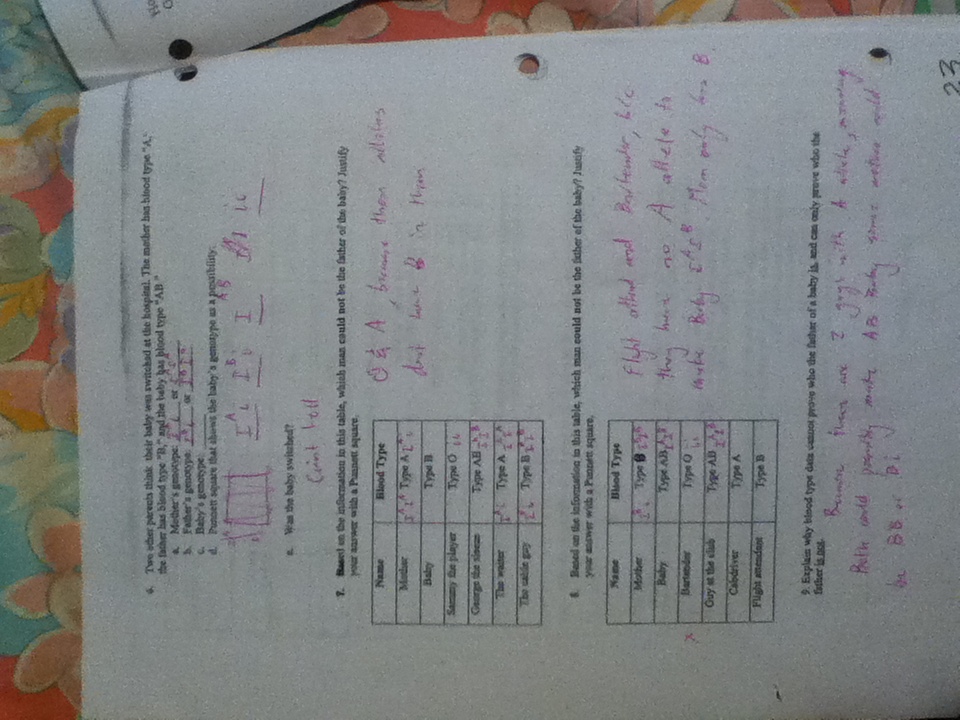 6. Two other parents think their baby was switched at the hospital. The mother has blood type "A,"
the father has blood type "B," and the baby has blood type "AB."
a. Mother's genotype: I^A i or I^A I^A
b. Father's genotype: I^B i or I^B I^B
c. Baby's genotype:
d. Punnett square that shows the baby's genotype as a possibility:
I^A i I^B i I^AB ii
e. Was the baby switched?
Can't tell
7. Based on the information in this table, which man could not be the father of the baby? Justify
your answer with a Punnett square.
Name Blood Type
Mother I^A I^A Type A I^A i
Baby Type B
Sammy the player Type O ii
George the sleeze Type AB I^A I^B
The waiter I^A i Type A I^A I^A
The cable guy I^B i Type B I^B I^B
O & A, because them
don't have B in them
8. Based on the information in this table, which man could not be the father of the baby? Justify
your answer with a Punnett square.
Name Blood Type
Mother I^B i Type B I^B I^B
Baby Type AB I^A I^B
x Bartender Type O ii
Guy at the club Type AB I^A I^B
Cabdriver Type A
Flight attendant Type B
Flight attend and Bartender, b/c
they have no A allele to
make Baby I^A I^B. Mom only has B.
9. Explain why blood type data cannot prove who the father of a baby is, and can only prove who the
father is not.
Because there are 2 guys with A allele, meaning
Both could possibly make AB Baby since mother could
be BB or Bi
23